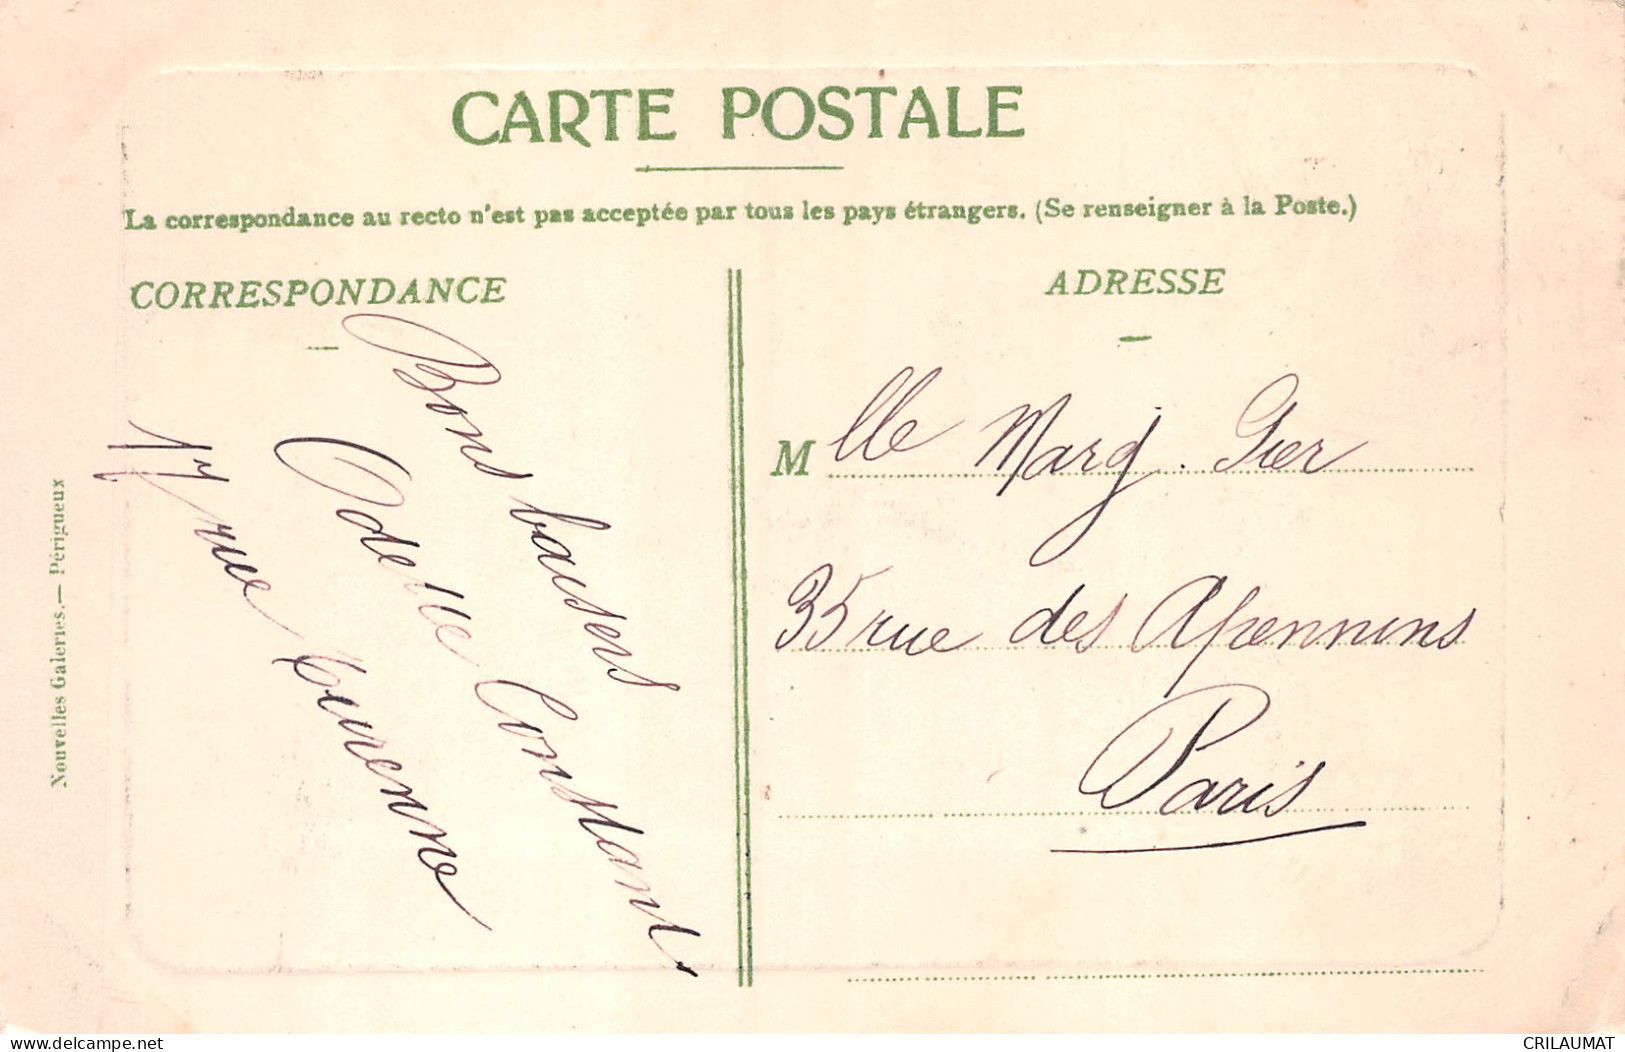 CARTE POSTALE
La correspondance au recto n'est pas acceptée par tous les pays étrangers. (Se renseigner à la Poste.)
CORRESPONDANCE
Bons baisers
Odette Constant
17 rue turenne
ADRESSE
Mlle Marg. Gier
35 rue des Apennins
Paris
Nouvelles Galeries.— Périgueux
www.delcampe.net
CRILAUMAT